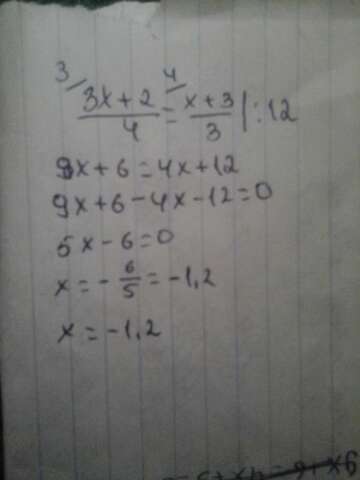 3/ (3x+2)/4 = 4/ (x+3)/3 |:12
9x+6=4x+12
9x+6-4x-12=0
5x-6=0
x=-6/5=-1,2
x=-1,2